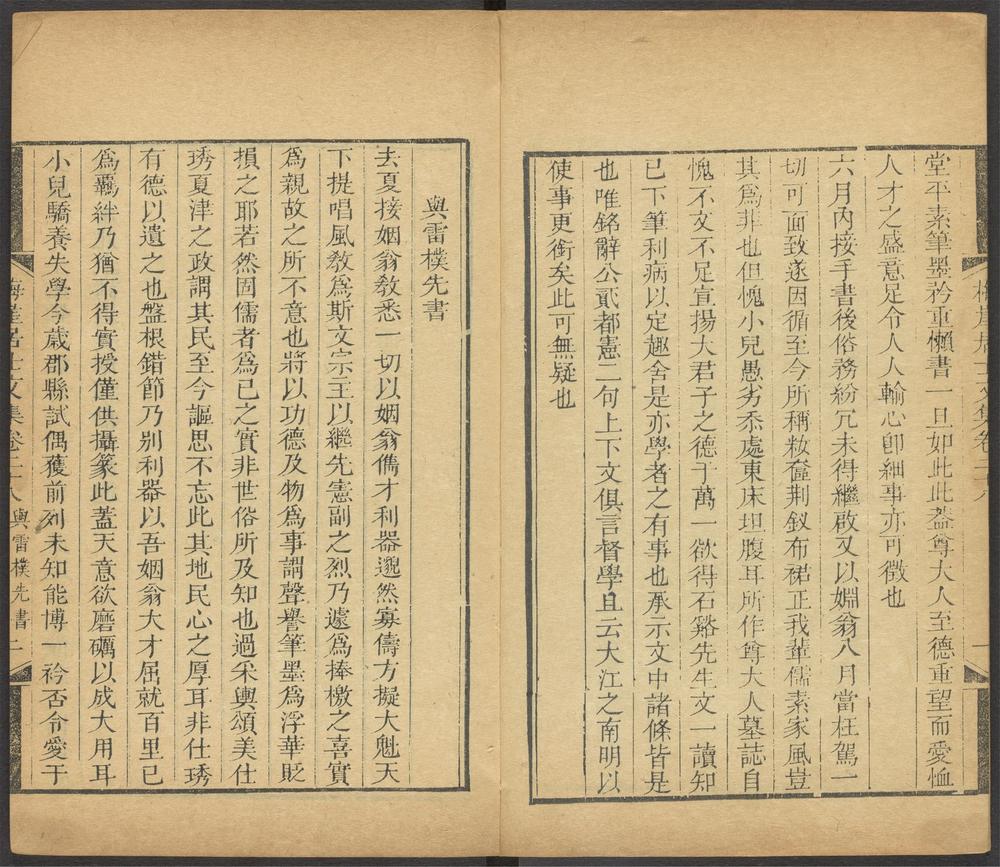 堂平素筆墨矜重懶書一旦如此此葢尊大人至德重望而愛恤
人才之盛意足令人人輸心卽細事亦可徵也
六月內接手書後俗務紛冗未得繼啟又以姻翁八月當枉駕一
切可面致遂因循至今所稱粧奩荆釵布裙正我輩儒素家風豈
其爲非也但愧小兒愚劣忝處東床坦腹耳所作尊大人墓誌自
愧不文不足宣揚大君子之德于萬一欲得石谿先生文一讀知
已下筆利病以定趣舍是亦學者之有事也承示文中諸條皆是
也唯銘辭公貳都憲二句上下文俱言督學且云大江之南明以
使事更銜矣此可無疑也
與雷樸先書
去夏接姻翁教悉一切以姻翁儁才利器邈然寡儔方擬大魁天
下提唱風敎爲斯文宗主以繼先憲副之烈乃遽爲捧檄之喜實
爲親故之所不意也將以功德及物爲事謂聲譽筆墨爲浮華貶
損之耶若然固儒者爲已之實非世俗所及知也過采輿頌美仕
琇夏津之政謂其民至今謳思不忘此其地民心之厚耳非仕琇
有德以遺之也盤根錯節乃別利器以吾姻翁大才屈就百里已
爲覊絆乃猶不得實授僅供攝篆此蓋天意欲磨礪以成大用耳
小兒驕養失學今歲郡縣試偶獲前列未知能博一衿否令愛于
梅崖居士文集卷二十八 與雷樸先書 二